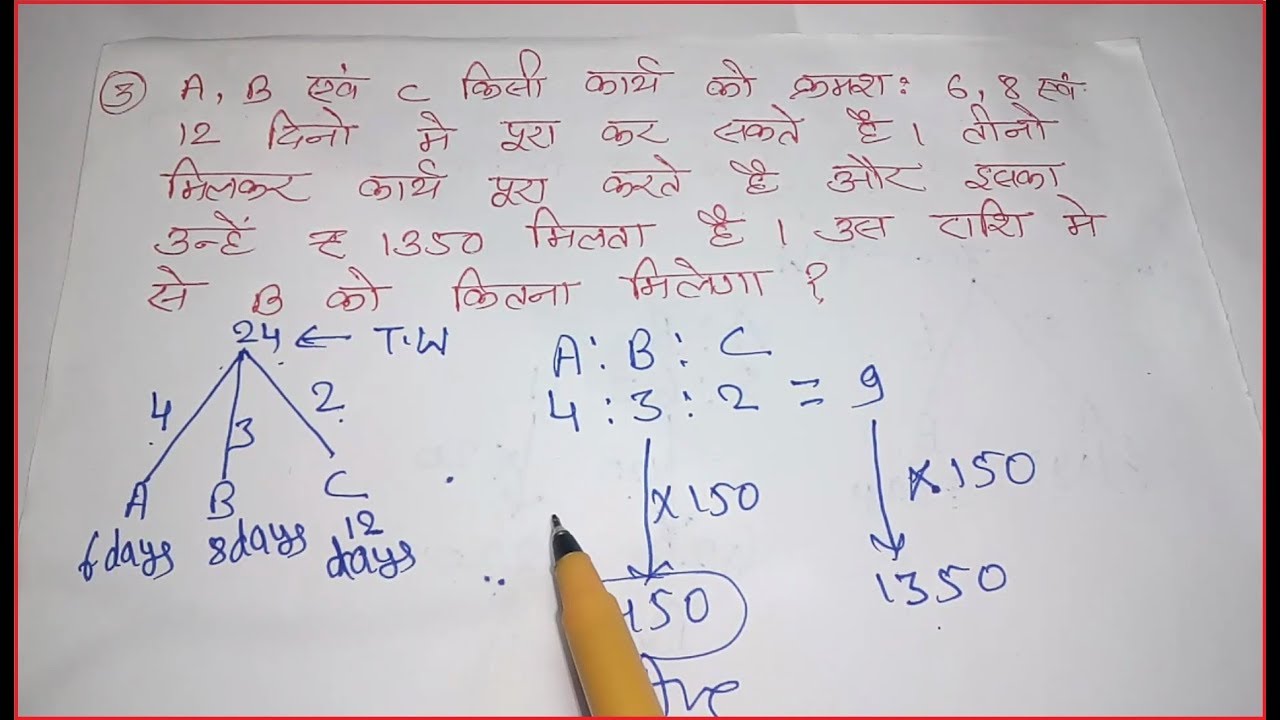 ③ A, B एवं C किसी कार्य को क्रमश: 6, 8 एवं
12 दिनो मे पूरा कर सकते है। तीनो
मिलकर कार्य पूरा करते है और इसका
उन्हें ₹ 1350 मिलता है। उस राशि मे
से B को कितना मिलेगा ?
24 ← T.W
4 3 2
A B C
6 days 8 days 12 days
A : B : C
4 : 3 : 2 = 9
×150 ×150
450 1350